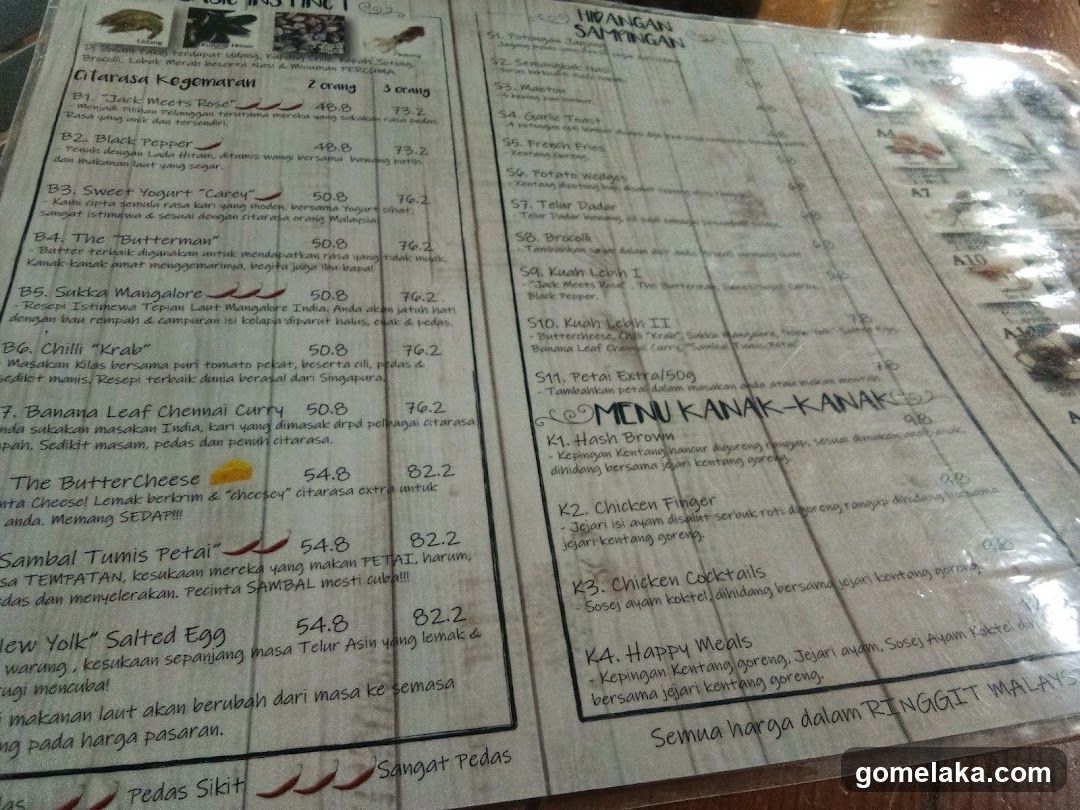 BASIC INSTINCT
Udang
Kupang Hitam
Di dalam Talam terdapat Udang, Kupang, Kerah, Sotong,
Brocolli, Lobak Merah beserta Nasi & Minuman PERCUMA
Citarasa Kegemaran 2 orang 3 orang
B1. "Jack Meets Rose" 48.8 73.2
- Menjadi Pilihan Pelanggan terutama mereka yang sukakan rasa pedas
Rasa yang unik dan tersendiri.
B2. Black Pepper 48.8 73.2
- Penuh dengan Lada Hitam, ditumis wangi bersama bawang putih
dan makanan laut yang segar.
B3. Sweet Yogurt "Carey" 50.8 76.2
- Kami cipta semula rasa kari yang moden, bersama Yogurt sihat,
sangat istimewa & sesuai dengan citarasa orang Malaysia
B4. The "Butterman" 50.8 76.2
- Butter terbaik digunakan untuk mendapatkan rasa yang tidak muak.
Kanak-kanak amat menggemarinya, begitu juga ibu-bapa!
B5. Sukka Mangalore 50.8 76.2
- Resepi Istimewa Tepian Laut Mangalore India. Anda akan jatuh hati
dengan bau rempah & campuran isi kelapa diparut halus, enak & pedas.
B6. Chilli "Krab" 50.8 76.2
Masakan Kilas bersama puri tomato pekat, beserta cili, pedas &
sedikit manis. Resepi terbaik dunia berasal dari Singapura.
7. Banana Leaf Chennai Curry 50.8 76.2
nda sukakan masakan India, kari yang dimasak drpd pelbagai citarasa
pah. Sedikit masam, pedas dan penuh citarasa.
The ButterCheese 54.8 82.2
nta Cheese! Lemak berkrim & "cheesey" citarasa extra untuk
anda. Memang SEDAP!!!
Sambal Tumis Petai" 54.8 82.2
sa TEMPATAN, kesukaan mereka yang makan PETAI, harum,
edas dan menyelerakan. Pecinta SAMBAL mesti cuba!!!
New Yolk" Salted Egg 54.8 82.2
warung, kesukaan sepanjang masa Telur Asin yang lemak &
rugi mencuba!
i makanan laut akan berubah dari masa ke semasa
ng pada harga pasaran.
das Pedas Sikit Sangat Pedas
HIDANGAN
SAMPINGAN
S1. Potongan Jagung
S2. Semangkuk Nasi
S3. Mantou
S4. Garlic Toast
S5. French Fries
- Kentang Goreng
S6. Potato Wedges
S7. Telur Dadar
S8. Brocolli
S9. Kuah Lebih I
- "Jack Meets Rose", The Butterman, Sweet Yogurt Carey,
Black Pepper.
S10. Kuah Lebih II 7.8
- Buttercheese, Chilli "Krab", Sukka Mangalore, "New Yolk" Salted Egg,
Banana Leaf Chennai Curry, "Sambal Tumis Petai"
S11. Petai Extra/50g 7.8
- Tambahkan petai dalam masakan anda atau makan mentah
MENU KANAK-KANAK
K1. Hash Brown 9.8
- Kepingan Kentang hancur digoreng rangup, sesuai dimakan anak-anak,
dihidang bersama jejari kentang goreng.
K2. Chicken Finger 9.8
- Jejari isi ayam disalut serbuk roti digoreng, rangup dihidang bersama
jejari kentang goreng.
K3. Chicken Cocktails 9.8
- Sosej ayam koktel, dihidang bersama jejari kentang goreng.
K4. Happy Meals
- Kepingan Kentang goreng, Jejari ayam, Sosej Ayam Koktel
bersama jejari kentang goreng.
Semua harga dalam RINGGIT MALAYS
A4
A7
A10
gomelaka.com